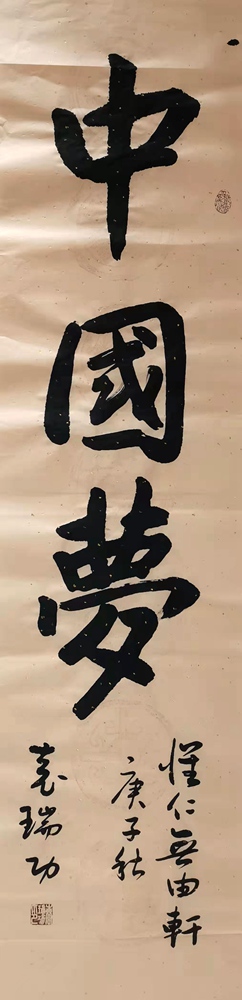 中國夢
仁無由軒
庚子秋
袁瑞功